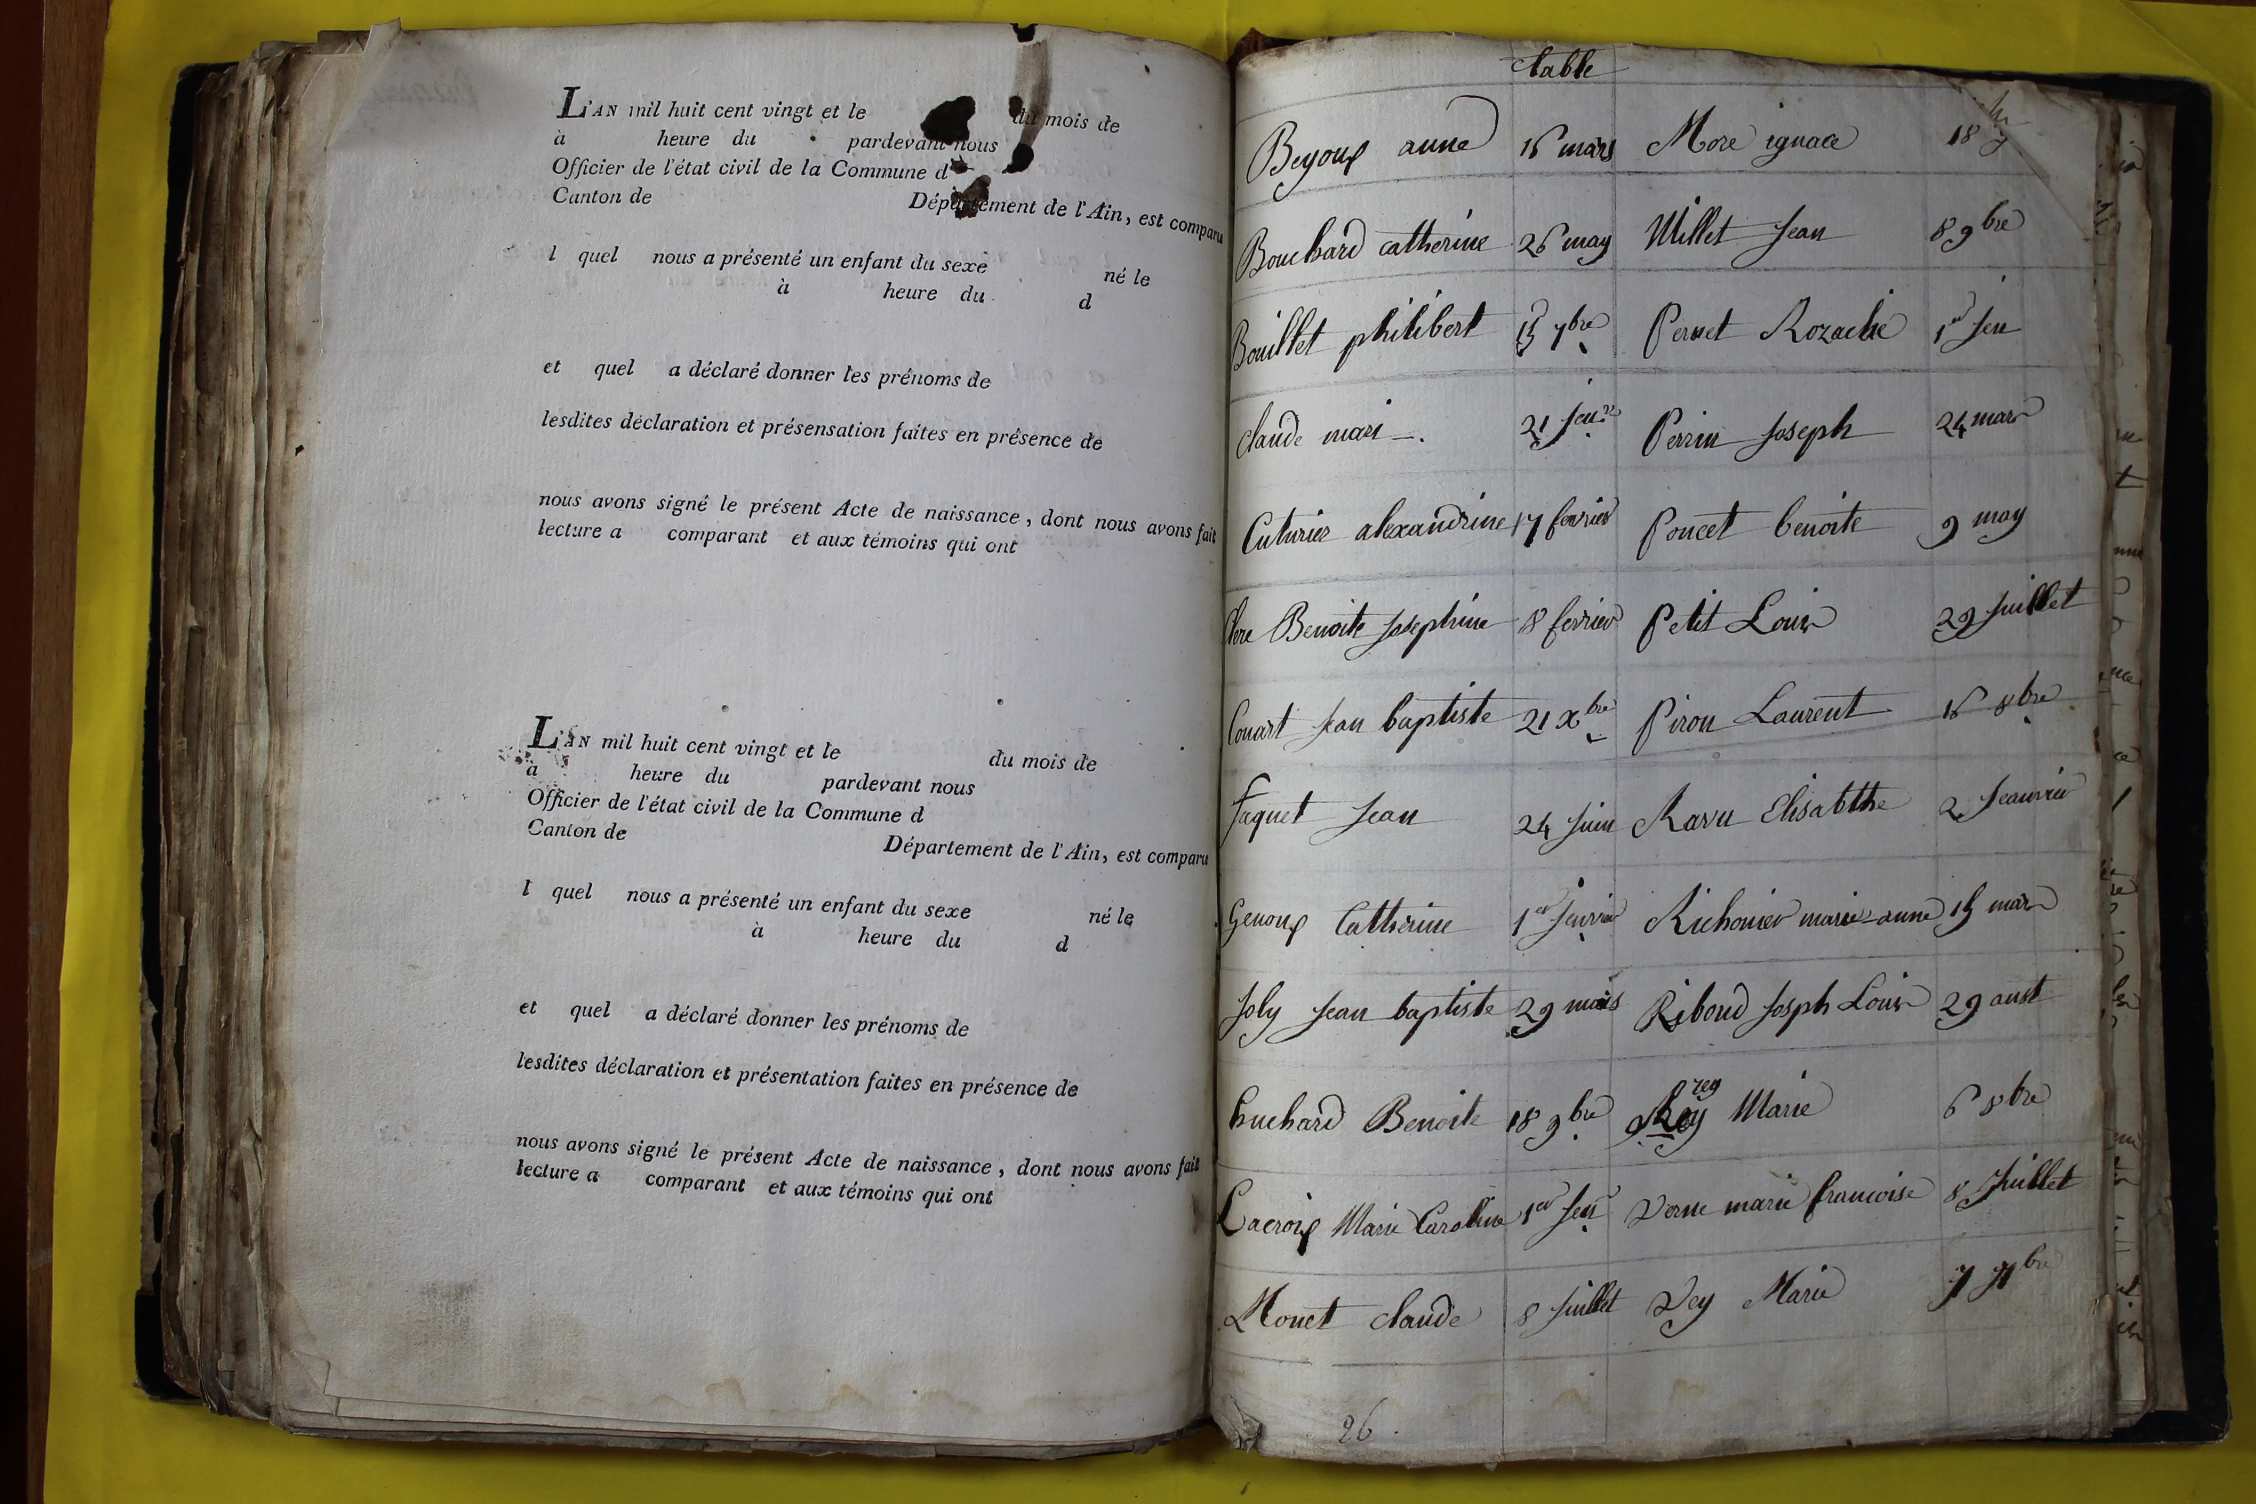 L'AN mil huit cent vingt et le du mois de
à heure du pardevant nous
Officier de l'état civil de la Commune d
Canton de Département de l'Ain, est comparu
l quel nous a présenté un enfant du sexe né le
à heure du d
et quel a déclaré donner les prénoms de
lesdites déclaration et présensation faites en présence de
nous avons signé le présent Acte de naissance, dont nous avons fait
lecture a comparant et aux témoins qui ont
L'AN mil huit cent vingt et le du mois de
à heure du pardevant nous
Officier de l'état civil de la Commune d
Canton de Département de l'Ain, est comparu
l quel nous a présenté un enfant du sexe né le
à heure du d
et quel a déclaré donner les prénoms de
lesdites déclaration et présentation faites en présence de
nous avons signé le présent Acte de naissance, dont nous avons fait
lecture a comparant et aux témoins qui ont
table
Beyoux anne 16 mars More ignace 18
Bouchard catherine 26 may Millet Jean 8 9bre
Bouillet philibert 15 7bre Pernet Rozachie 1er Jen
claude mari 21 Jenr Perrin Joseph 24 mars
Cuturier alexandrine 17 fevrier Poncet benoite 9 may
Benoite Josephine 18 fevrier Petit Louis 29 Juillet
Couart Jean baptiste 21 Xbre Piron Laurent 16 8bre
faquet Jean 24 Juin Ravu Elisabthe 2 Jeanvier
Genoux Catherine 1er Jenvier Richonier marie-anne 15 mars
Joly Jean baptiste 29 mars Riboud Josph Louis 29 aust
huchard Benoite 18 9bre Rey Marie 6 8bre
rey
Lacroix Marie Caroline 1er Jenr Verne marie francoise 8 Juillet
Monet claude 8 Juillet Vey Marie 7 7bre
26